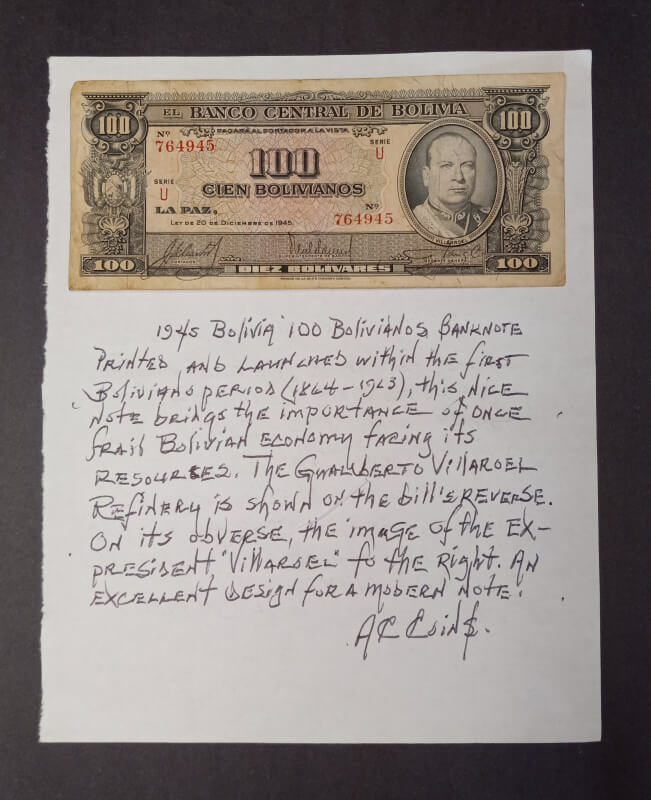 EL BANCO CENTRAL DE BOLIVIA
100
100
PAGARÁ AL PORTADOR A LA VISTA
Nº
764945
SERIE
U
100
SERIE
U
CIEN BOLIVIANOS
LA PAZ,
Nº
764945
LEY DE 20 DE DICIEMBRE DE 1945.
VILLARROEL
100
DIEZ BOLIVARES
100
1945 Bolivia 100 Bolivianos Banknote
Printed and launched within the first
Boliviano period (1864-1963), this nice
note brings the importance of once
frail Bolivian economy facing its
resourses. The Gwalberto Villaroel
Refinery is shown on the bill's reverse.
On its obverse, the image of the ex-
president "Villaroel" to the right. An
excellent design for a modern note.
AC Coin$.